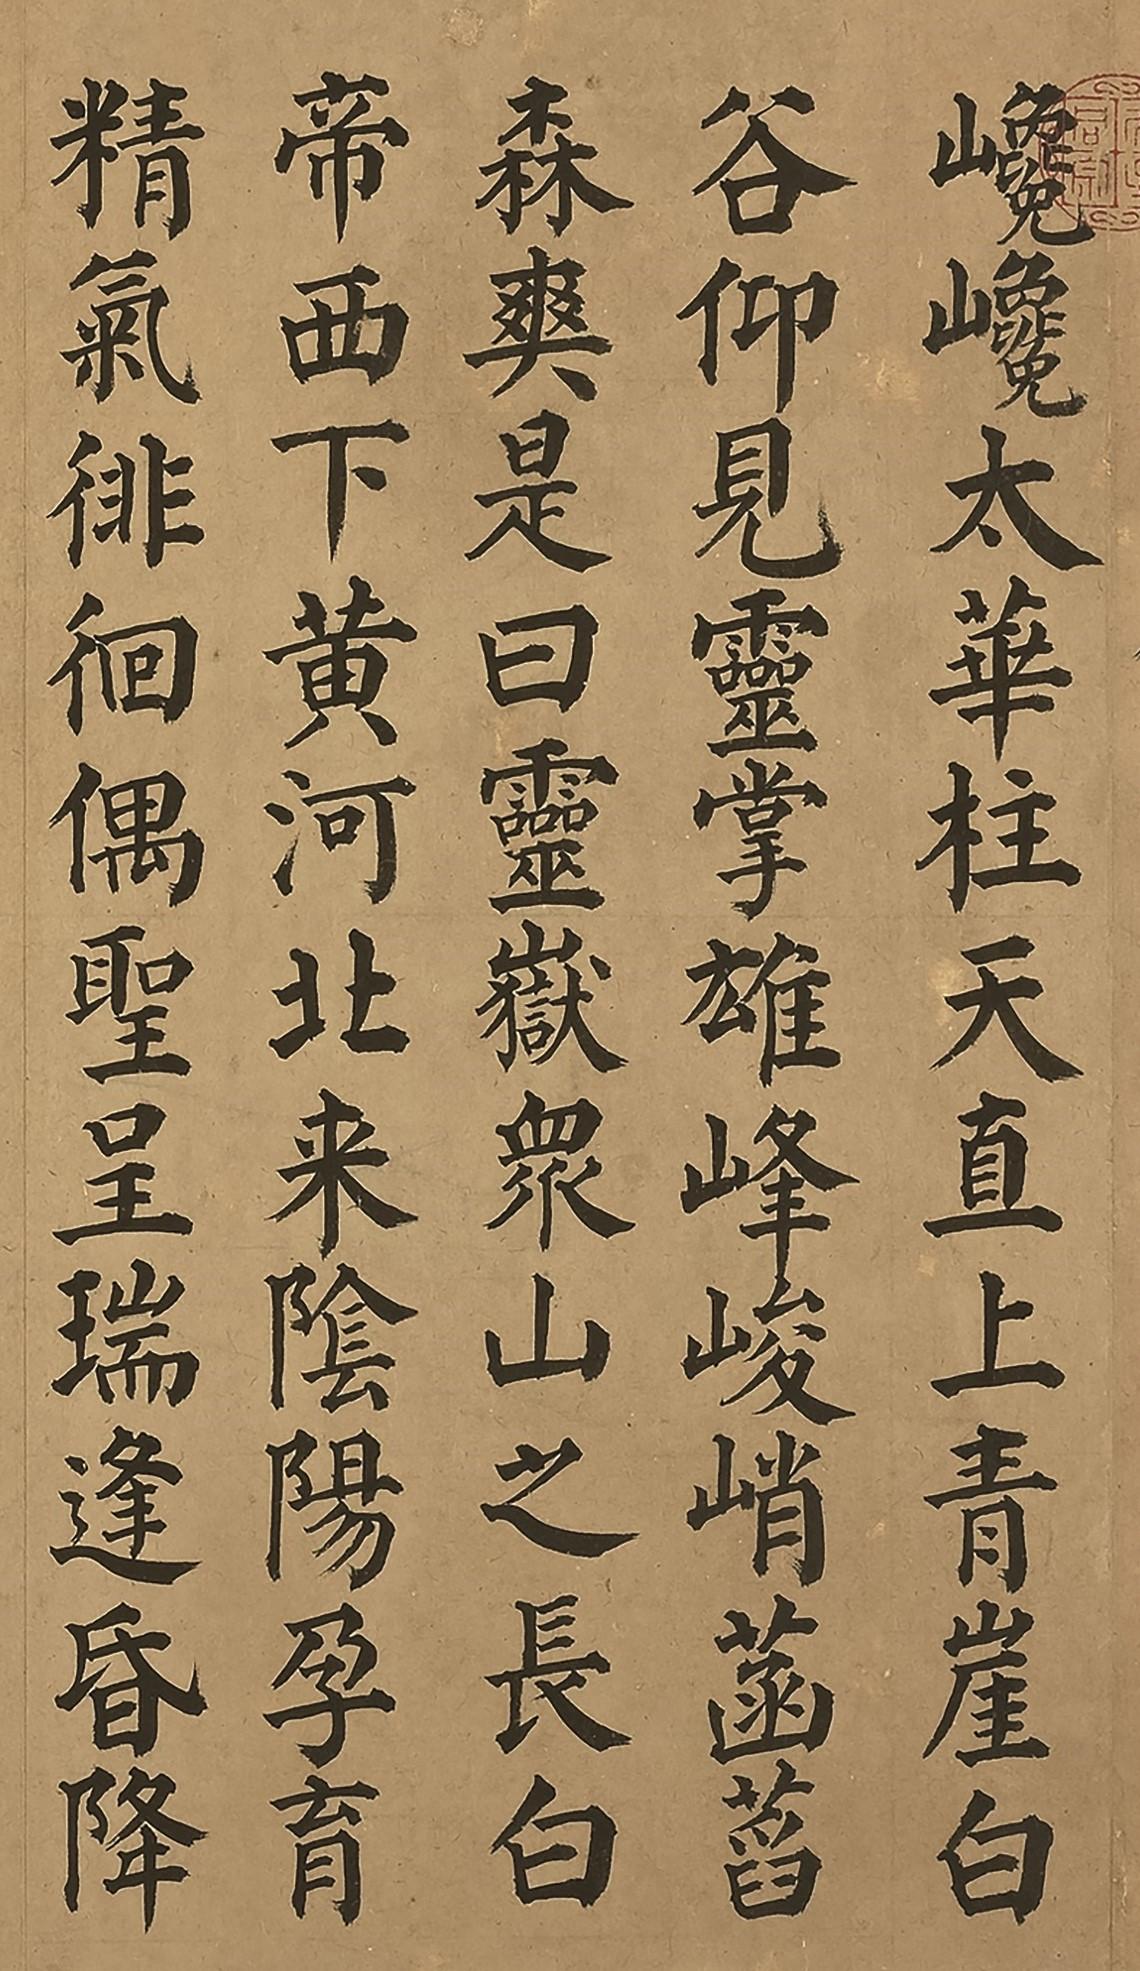 巉巉太華柱天直上青崖白
谷仰見靈掌雄峰峻峭菡萏
森爽是曰靈嶽衆山之長白
帝西下黄河北来陰陽孕育
精氣徘徊偶聖呈瑞逢昏降